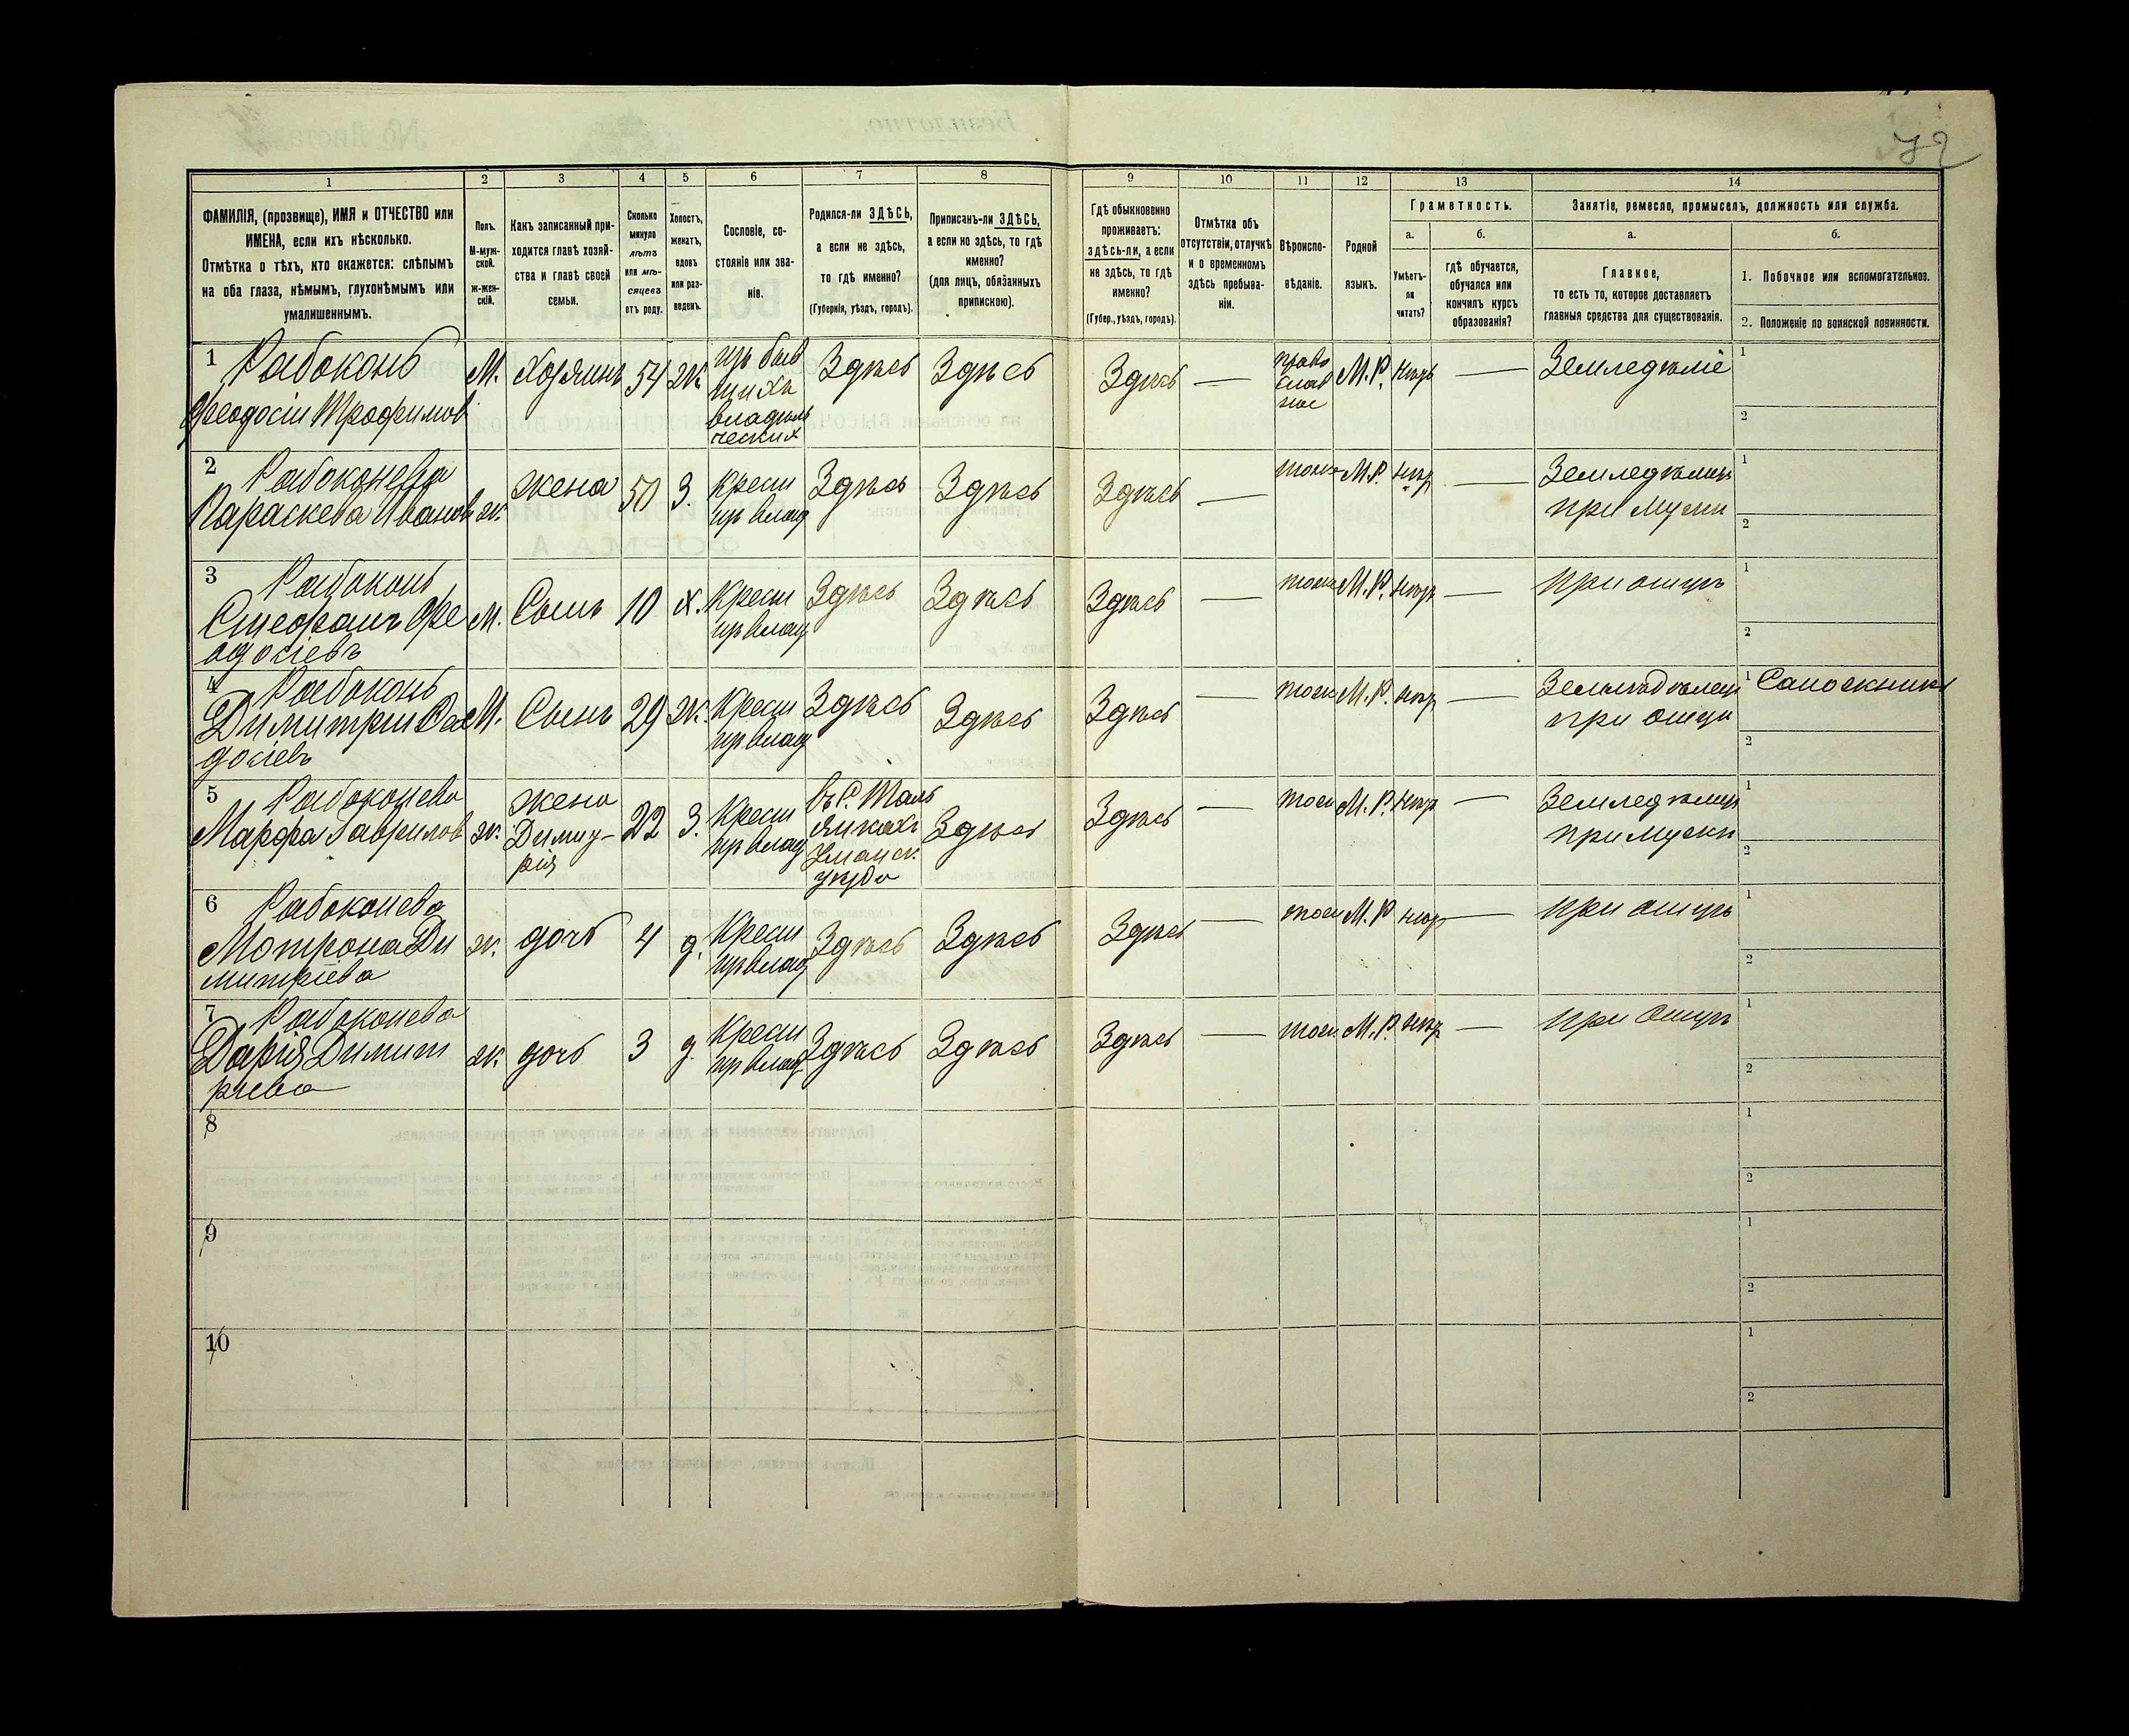 72
1
2
3
4
5
6
7
8
9
10
11
12
13
14
ФАМИЛІЯ, (прозвище), ИМЯ и ОТЧЕСТВО или
ИМЕНА, если ихъ нѣсколько.
Отмѣтка о тѣхъ, кто окажется: слѣпымъ
на оба глаза, нѣмымъ, глухонѣмымъ или
умалишеннымъ.
Полъ.
М-муж-
ской.
ж-жен-
скій.
Какъ записанный при-
ходится главѣ хозяй-
ства и главѣ своей
семьи.
Сколько
минуло
лѣтъ
или мѣ-
сяцевъ
отъ роду.
Холостъ,
женатъ,
вдовъ
или раз-
веденъ.
Сословіе, со-
стояніе или зва-
ніе.
Родился-ли ЗДѢСЬ,
а если не здѣсь,
то гдѣ именно?
(Губернія, уѣздъ, городъ).
Приписанъ-ли ЗДѢСЬ,
а если но здѣсь, то гдѣ
именно?
(для лицъ, обязанныхъ
припискою).
Гдѣ обыкновенно
проживаетъ:
здѣсь-ли, а если
не здѣсь, то гдѣ
именно?
(Губер., уѣздъ, городъ).
Отмѣтка объ
отсутствіи, отлучкѣ
и о временномъ
здѣсь пребыва-
ніи.
Вѣроиспо-
вѣданіе.
Родной
языкъ.
Грамотность.
а.
Умѣетъ-
ли
читать?
б.
гдѣ обучается,
обучался или
кончилъ курсъ
образованія?
Занятіе, ремесло, промыселъ, должность или служба.
а.
Главное,
то есть то, которое доставляетъ
главныя средства для существованія.
б.
1. Побочное или вспомогательное.
2. Положеніе по воинской повинности.
1 Рабоконь
Феодосіи Трофимов
М.
Хозяинъ
54
Ж
изъ быв
шихъ
владѣль
ческих
Здѣсь
Здѣсь
Здѣсь
—
право
слав
ное
М.Р.
нѣтъ
—
Земледѣліе
1
2
2 Рабоконева
Параскева Иванов
ж.
жена
50
З.
крест
из влад
Здѣсь
Здѣсь
Здѣсь
—
тоже
М.Р.
—
при мужи
1
2
3 Рабоконь
Стефанъ Фе
одосіевъ
М.
Сынъ
10
х.
Крест
из влад
Здѣсь
Здѣсь
Здѣсь
—
М.Р.
—
при отцѣ
1
2
4 Рабоконь
Димитрии Фео
досіевъ
М.
Сынъ
29
Ж.
Крест
из влад
Здѣсь
Здѣсь
Здѣсь
—
М.Р.
—
при отци
1 Сапожникъ
2
5 Рабоконева
Марфа Гаврилов
ж.
жена
Димит-
рія
22
З.
Крест
из влад
въ С. Таль
янкахъ
Уманск.
уѣзда
Здѣсь
Здѣсь
—
М.Р.
—
при мужи
1
2
6 Рабоконева
Мотрона Ди
митріева
ж.
дочь
4
д.
Крест
из влад
Здѣсь
Здѣсь
Здѣсь
—
М.Р
—
при отцѣ
1
2
7 Рабоконева
Дарія Димит
риева
ж
дочь
3
д.
Крест
из влад
Здѣсь
Здѣсь
Здѣсь
—
М.Р.
—
при отцѣ
1
2
8
1
2
9
1
2
10
1
2